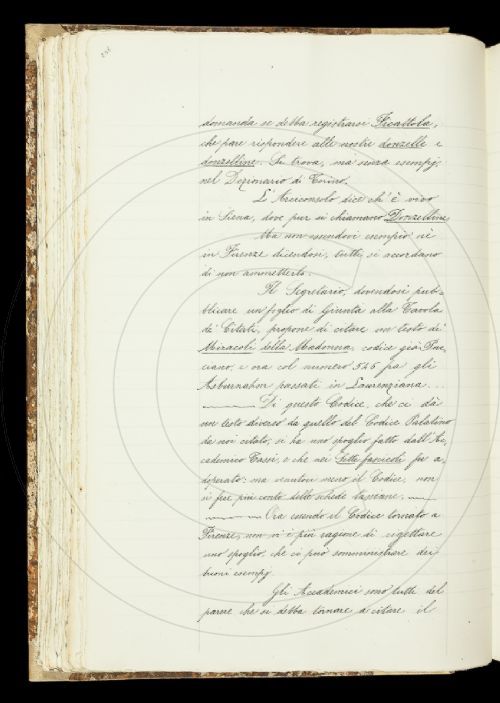 domanda se debba registrarsi Ficattola,
che pare rispondere alle nostre donzelle e
donzelline. Si trova, ma senza esempj,
nel Dizionario di Torino.
L'Arciconsolo dice ch'è vivo
in Siena, dove pur si chiamano Donzelline
Ma non essendovi esempio nè
in Firenze dicendosi, tutti si accordano
di non ammetterlo.
Il Segretario, dovendosi pub-
blicare un foglio di Giunta alla Tavola
de' Citati, propone di citare un testo de'
Miracoli della Madonna, codice già Puc-
ciano, e ora col numero 546 fra gli
Asburnahon passati in Laurenziana...
Di questo Codice, che ci dà
un testo diverso da quello del Codice Palatino
da noi citato, si ha uno spoglio fatto dall'Ac-
cademico Tassi, e che nei Sette fascicoli fu a-
doperato: ma venuton meno il Codice, non
si fece più conto delle schede tassiane.
Ora essendo il Codice tornato a
Firenze, non vi è più ragione di rigettare
uno spoglio che ci può somministrare dei
buoni esempj.
Gli Accademici sono tutti del
parere che si debba tornare a citare il